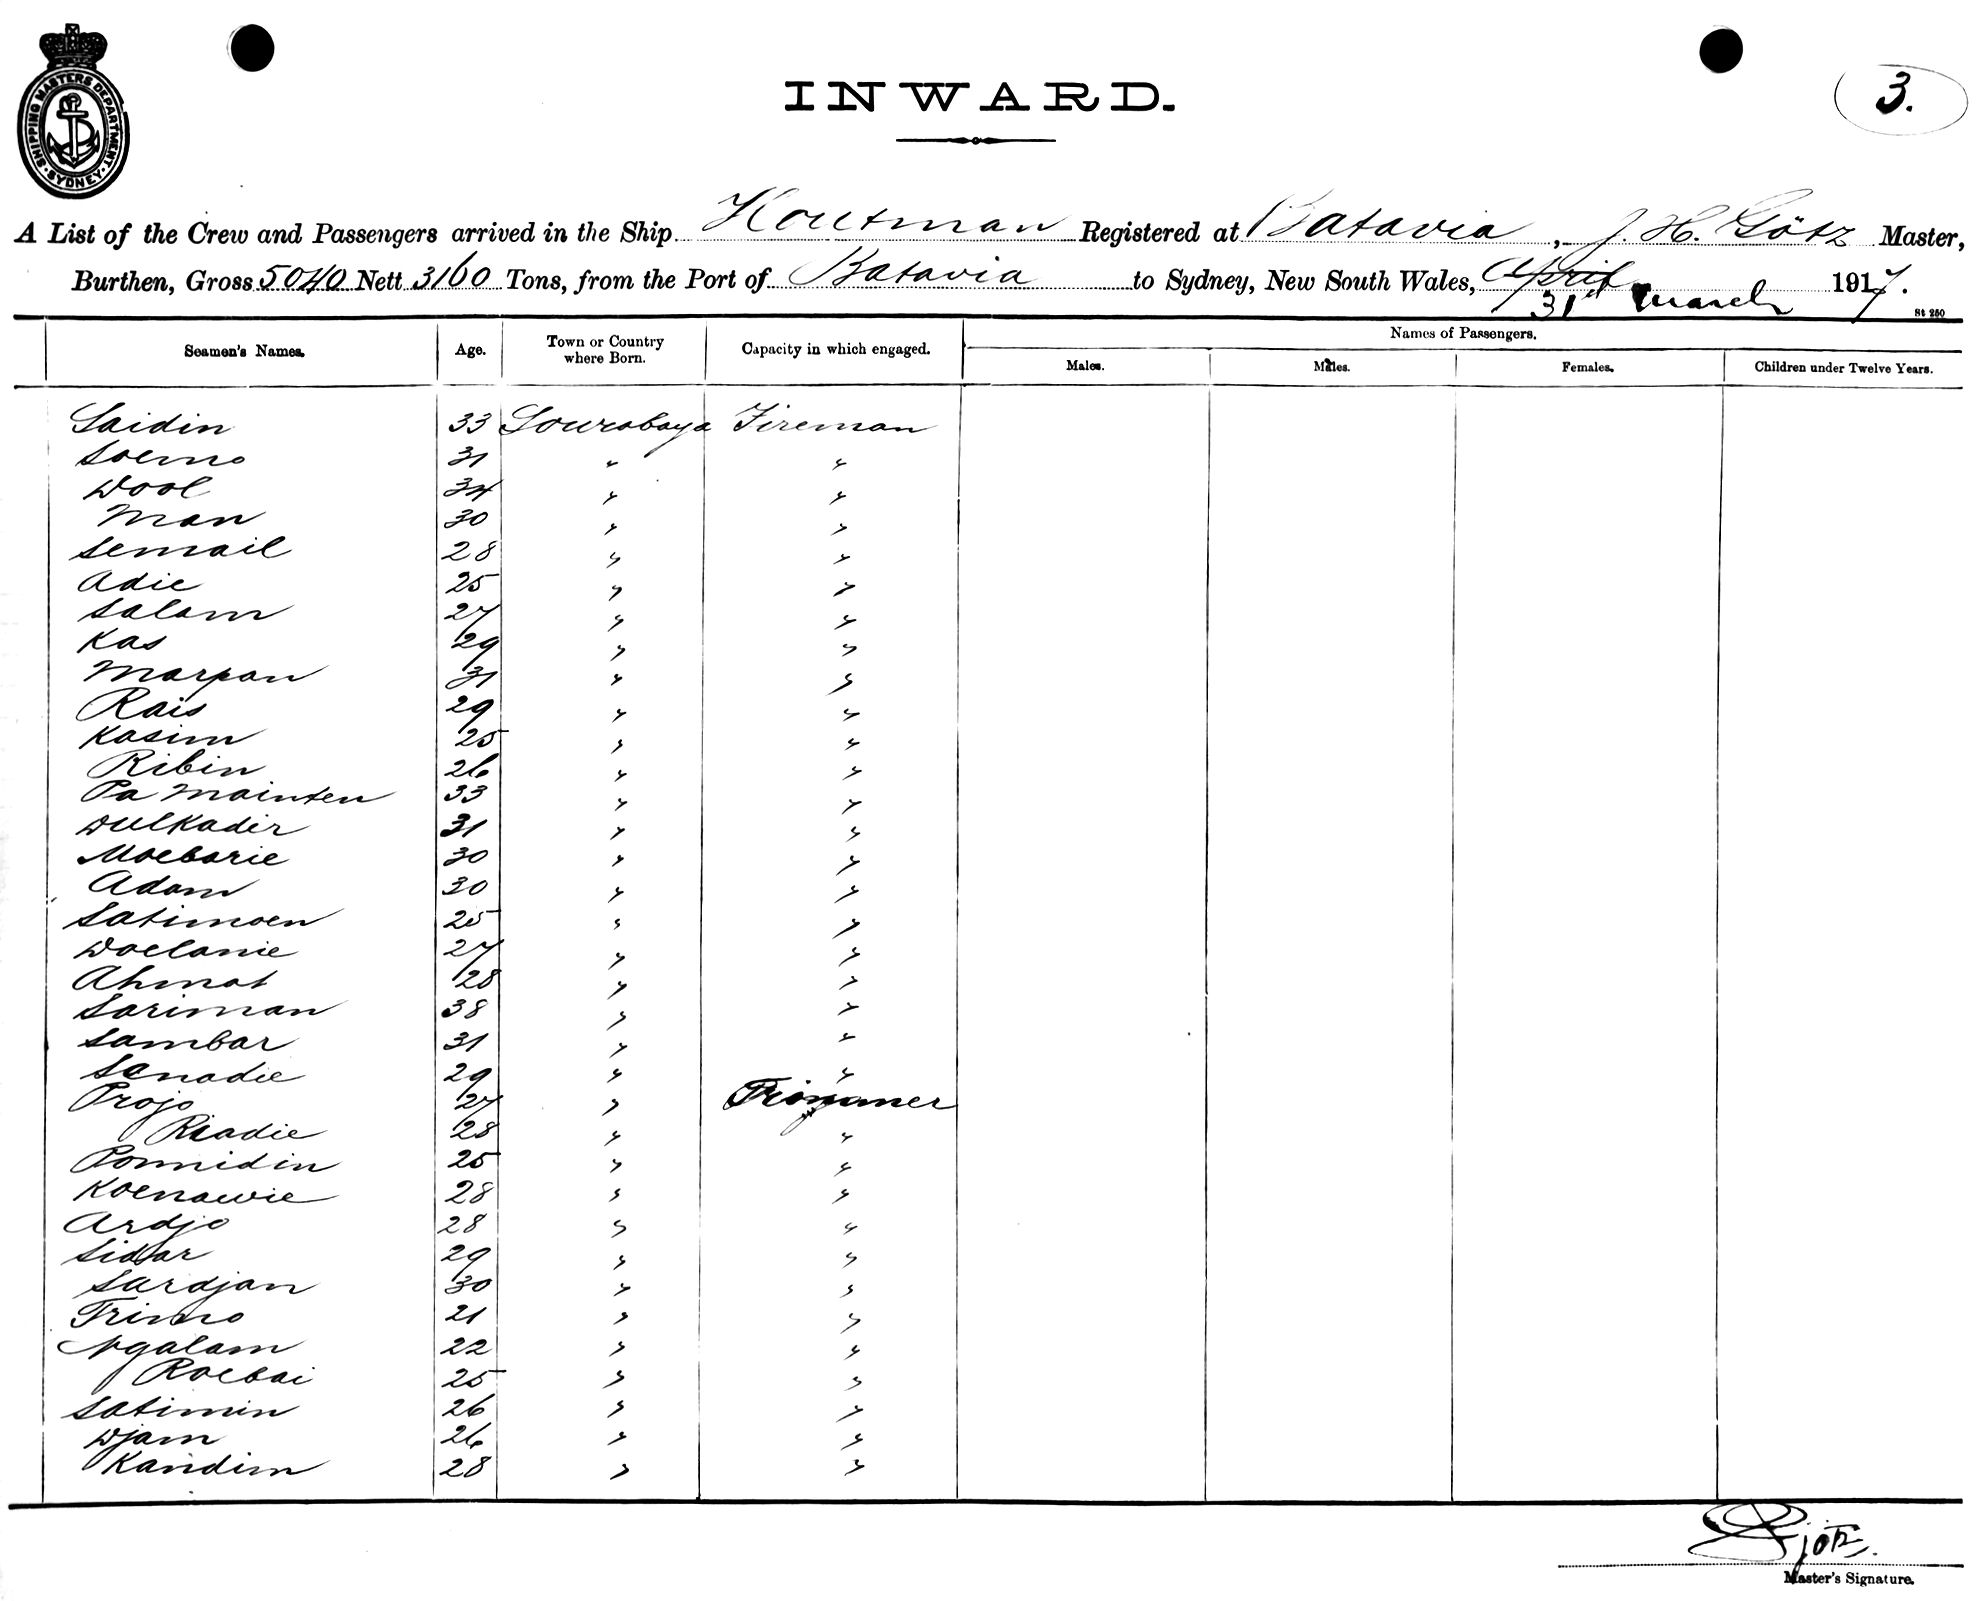 SHIPPING MASTERS DEPARTMENT · SYDNEY ·
INWARD.
3.
A List of the Crew and Passengers arrived in the Ship Houtman Registered at Batavia, J. H. Götz Master,
Burthen, Gross 5040 Nett 3160 Tons, from the Port of Batavia to Sydney, New South Wales, April 1917.
31st March
St 250
Seamen's Names. Age. Town or Country where Born. Capacity in which engaged. Names of Passengers.
Males. Males. Females. Children under Twelve Years.
Saidin 33 Sourabaya Fireman
Soemo 31 " "
Dool 34 " "
Man 30 " "
Semail 28 " "
Adie 25 " "
Salam 27 " "
Kas 29 " "
Marpan 31 " "
Rais 29 " "
Kasim 25 " "
Ribin 26 " "
Pa Mainten 33 " "
Dulkadir 31 " "
Moebarie 30 " "
Adam 30 " "
Satimoen 25 " "
Doelanie 27 " "
Ahmat 28 " "
Sariman 38 " "
Sambar 31 " "
Sanadie 29 " "
Projo 27 "
Riadie 28 " "
Ponnidin 25 " "
Koenawie 28 " "
Ardjo 28 " "
Sidar 29 " "
Sardjan 30 " "
Trimo 21 " "
Ngalam 22 " "
Roebai 25 " "
Satimin 26 " "
Djam 26 " "
Kandim 28 " "
Master's Signature.